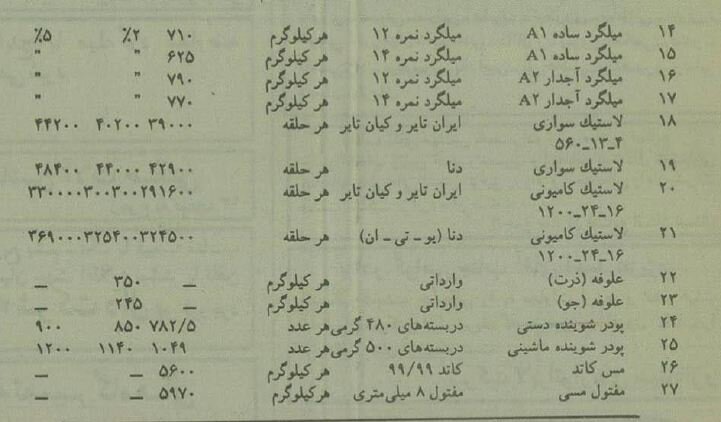 ۱۴ میلگرد ساده A۱ میلگرد نمره ۱۲ هرکیلوگرم ۷۱۰ ۲٪ ۵٪
۱۵ میلگرد ساده A۱ میلگرد نمره ۱۴ هر کیلوگرم ۶۲۵ " "
۱۶ میلگرد آجدار A۲ میلگرد نمره ۱۲ هر کیلوگرم ۷۹۰ " "
۱۷ میلگرد آجدار A۲ میلگرد نمره ۱۴ هر کیلوگرم ۷۷۰ " "
۱۸ لاستیك سواری ایران تایر و کیان تایر هر حلقه ۳۹۰۰۰ ۴۰۲۰۰ ۴۴۲۰۰
۵۶۰_۱۳_۴
۱۹ لاستیك سواری دنا هر حلقه ۴۲۹۰۰ ۴۴۰۰۰ ۴۸۴۰۰
۲۰ لاستیك کامیونی ایران تایر و کیان تایر هر حلقه ۲۹۱۶۰۰ ۳۰۰۳۰۰ ۳۳۰۰۰۰
۱۲۰۰_۲۴_۱۶
۲۱ لاستیك کامیونی دنا (یو _ تی _ ان) هر حلقه ۳۲۴۵۰۰ ۳۲۵۴۰۰ ۳۶۹۰۰۰
۱۲۰۰_۲۴_۱۶
۲۲ علوفه (ذرت) وارداتی هر کیلوگرم _ ۳۵۰ _
۲۳ علوفه (جو) وارداتی هر کیلوگرم _ ۲۴۵ _
۲۴ پودر شوینده دستی دربسته‌های ۴۸۰ گرمی هر عدد ۷۸۲/۵ ۸۵۰ ۹۰۰
۲۵ پودر شوینده ماشینی دربسته‌های ۵۰۰ گرمی هر عدد ۱۰۴۹ ۱۱۴۰ ۱۲۰۰
۲۶ مس کاتد کاتد ۹۹/۹۹ هر کیلوگرم ۵۶۰۰ _ _
۲۷ مفتول مسی مفتول ۸ میلی‌متری هرکیلوگرم ۵۹۷۰ _ _